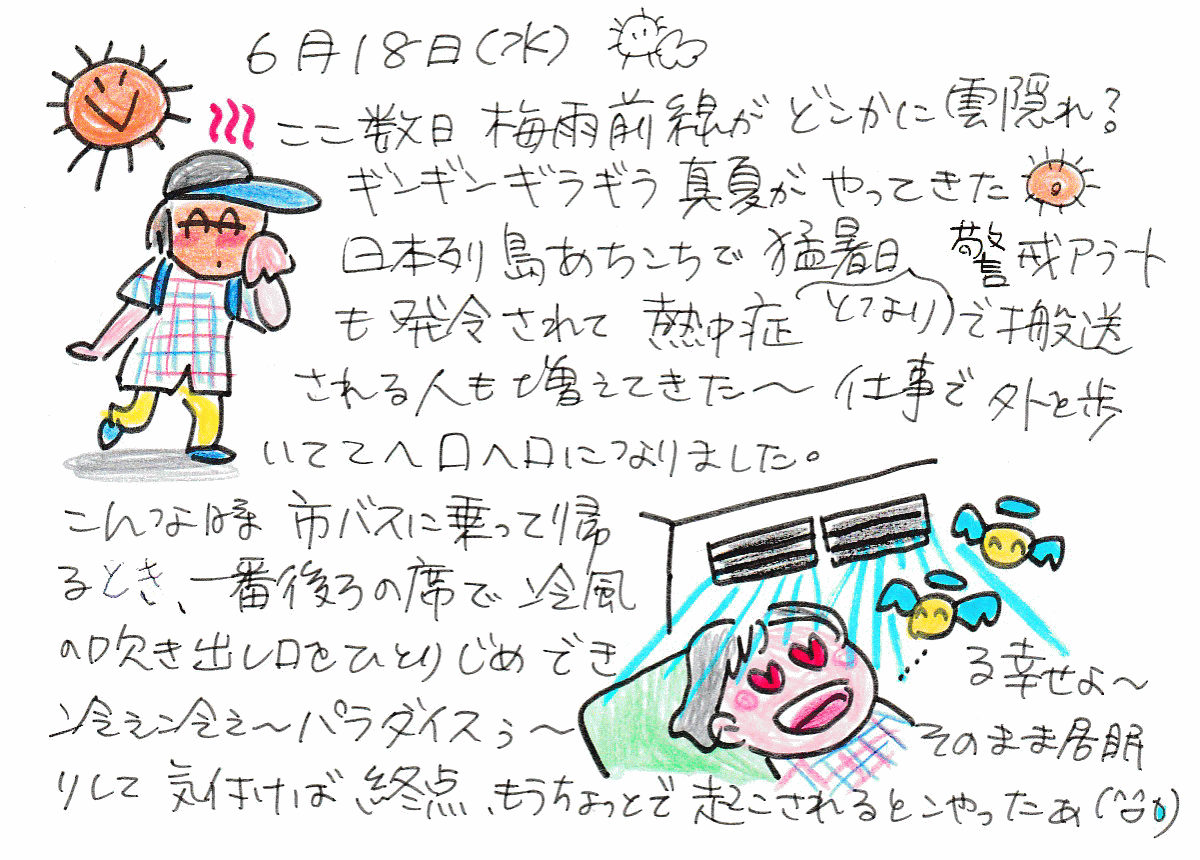 6月18日(水)
ここ数日 梅雨前線が どこかに雲隠れ?
ギンギンギラギラ 真夏が やってきた
日本列島あちこちで 猛暑日 警戒アラート
も発令されて 熱中症(となり)で搬送
される人も増えてきた〜 仕事で 外を歩
いててヘロヘロになりました。
こんな時 市バスに乗って帰
るとき、一番後ろの席で 冷風
の吹き出し口をひとりじめでき
る幸せよ〜
冷え冷え〜パラダイスぅ〜
そのまま居眠
りして 気付けば 終点、もうちょっとで 起こされるとこやったぁ(^^;)